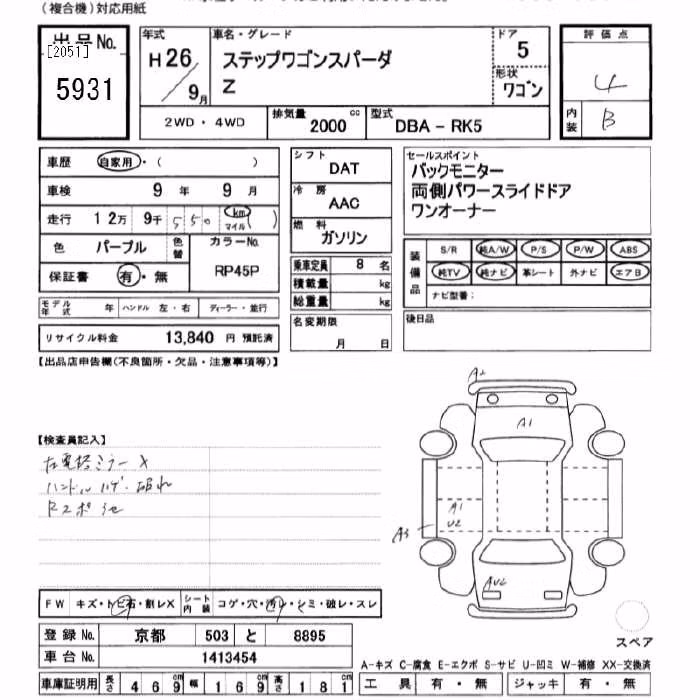 (複合機)対応用紙
出品No.
[2051]
5931
年式
H26/9月
車名・グレード
ステップワゴンスパーダ
Z
ドア
5
形状
ワゴン
評価点
4
内装
B
2WD・4WD
排気量
2000 cc
型式
DBA - RK5
車歴 自家用・( )
車検 9年 9月
走行 12万 9千 550 km マイル ( )
色 パープル 色替
カラーNo.
RP45P
保証書 有・無
モデル年式 年 ハンドル 左・右 ディーラー・並行
リサイクル料金 13,840 円 預託済
シフト
DAT
冷房
AAC
燃料
ガソリン
乗車定員 8 名
積載量 kg
総重量 kg
名変期限
月 日
セールスポイント
バックモニター
両側パワースライドドア
ワンオーナー
装備品
S/R 純A/W P/S P/W ABS
純TV 純ナビ 革シート 外ナビ エアB
ナビ型番:
後日品
【出品店申告欄(不良箇所・欠品・注意事項等)】
【検査員記入】
左電格ミラーX
ハンドルハゲ・破れ
A2
A1
A1
U2
A3
AU2
FW キズ・トビ石・割レX シート内装 コゲ・穴・汚レ・シミ・破レ・スレ
登録No. 京都 503 と 8895
車台No. 1413454
車庫証明用 長さ 469 幅 169 高さ 181
スペア
A-キズ C-腐食 E-エクボ S-サビ U-凹ミ W-補修 XX-交換済
工具 有・無 ジャッキ 有・無